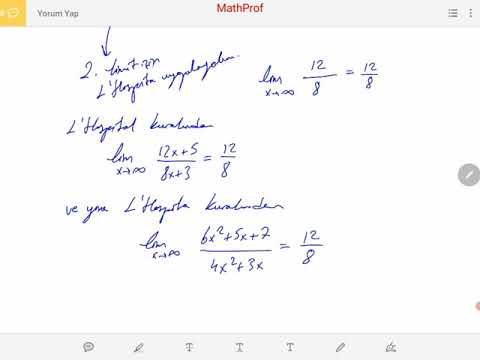 MathProf
Yorum Yap
2. limit için
L'Hospita uygulayalım.
lim x→∞ 12/8 = 12/8
L'Hospital kuralından
lim x→∞ (12x+5)/(8x+3) = 12/8
ve yine L'Hospita kuralından
lim x→∞ (6x²+5x+7)/(4x²+3x) = 12/8